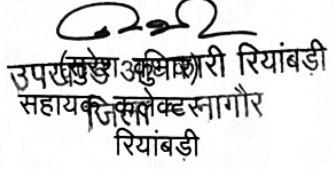 (सुरेश कुमार)
उपखण्ड अधिकारी रियांबड़ी
सहायक कलेक्टर
जिला नागौर
रियांबड़ी